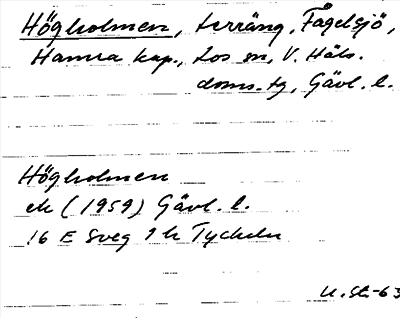 Högholmen, terräng, Fågelsjö,
Hamra kap., Los sn, V. Häls.
doms. tg, Gävl. l.
Högholmen
ek (1959) Gävl. l.
16 E Sveg 9 h Tyckeln
U. St-63